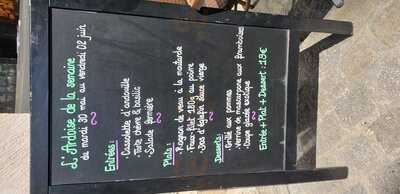 L'Ardoise de la semaine
du mardi 30 mai au vendredi 02 juin
Entrées:
• Cassolette d'andouille
• Tarte chèvre & basilic
• Salade fermière
Plats:
• Rognon de veau à la moutarde
• Faux-filet 180g au poivre
• Dos d'églefin sauce vierge
Desserts:
• Grillé aux pommes
• Verrine de mascarpone aux framboises
• Coupe glacée exotique
Entrée + Plat + Dessert : 18€